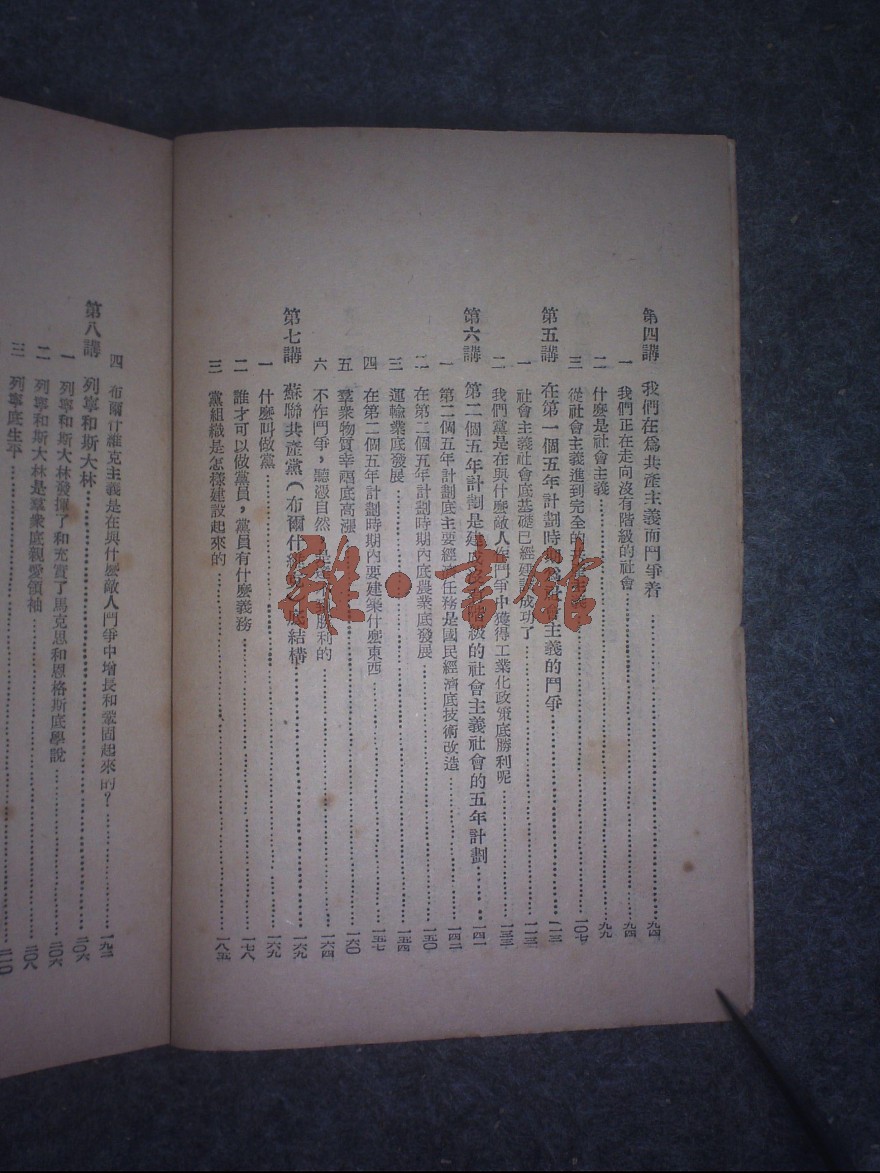 第四講 我們在爲共產主義而鬥爭着……九四
一 我們正在走向沒有階級的社會……九四
二 什麼是社會主義……九九
三 從社會主義進到完全的共產主義……一〇七
第五講 在第一個五年計劃時期 社會主義的鬥爭……一一三
一 社會主義社會底基礎已經建 成功了……一一三
二 我們黨是在與什麼敵人作鬥爭中獲得工業化政策底勝利呢……一三三
第六講 第二個五年計劃是建 階級的社會主義社會的五年計劃……一四一
一 第二個五年計劃底主要經 任務是國民經濟底技術改造……一四二
二 在第二個五年計劃時期內底農業底發展……一五〇
三 運輸業底發展……一五四
四 在第二個五年計劃時期內要建築什麼東西……一五七
五 羣衆物質幸福底高漲……一六〇
六 不作鬥爭,聽憑自然, 是 勝利的……一六四
第七講 蘇聯共產黨(布爾什維 底結構……一六九
一 什麼叫做黨……一六九
二 誰才可以做黨員,黨員有什麼義務……一七八
三 黨組織是怎樣建設起來的……一八五
四 布爾什維克主義是在與什麼敵人鬥爭中增長和鞏固起來的?……一九二
第八講 列寧和斯大林……二〇六
一 列寧和斯大林發揮了和充實了馬克思和恩格斯底學說……二〇六
二 列寧和斯大林是羣衆底親愛領袖……二〇八
三 列寧底生平……二一〇
雅·書館